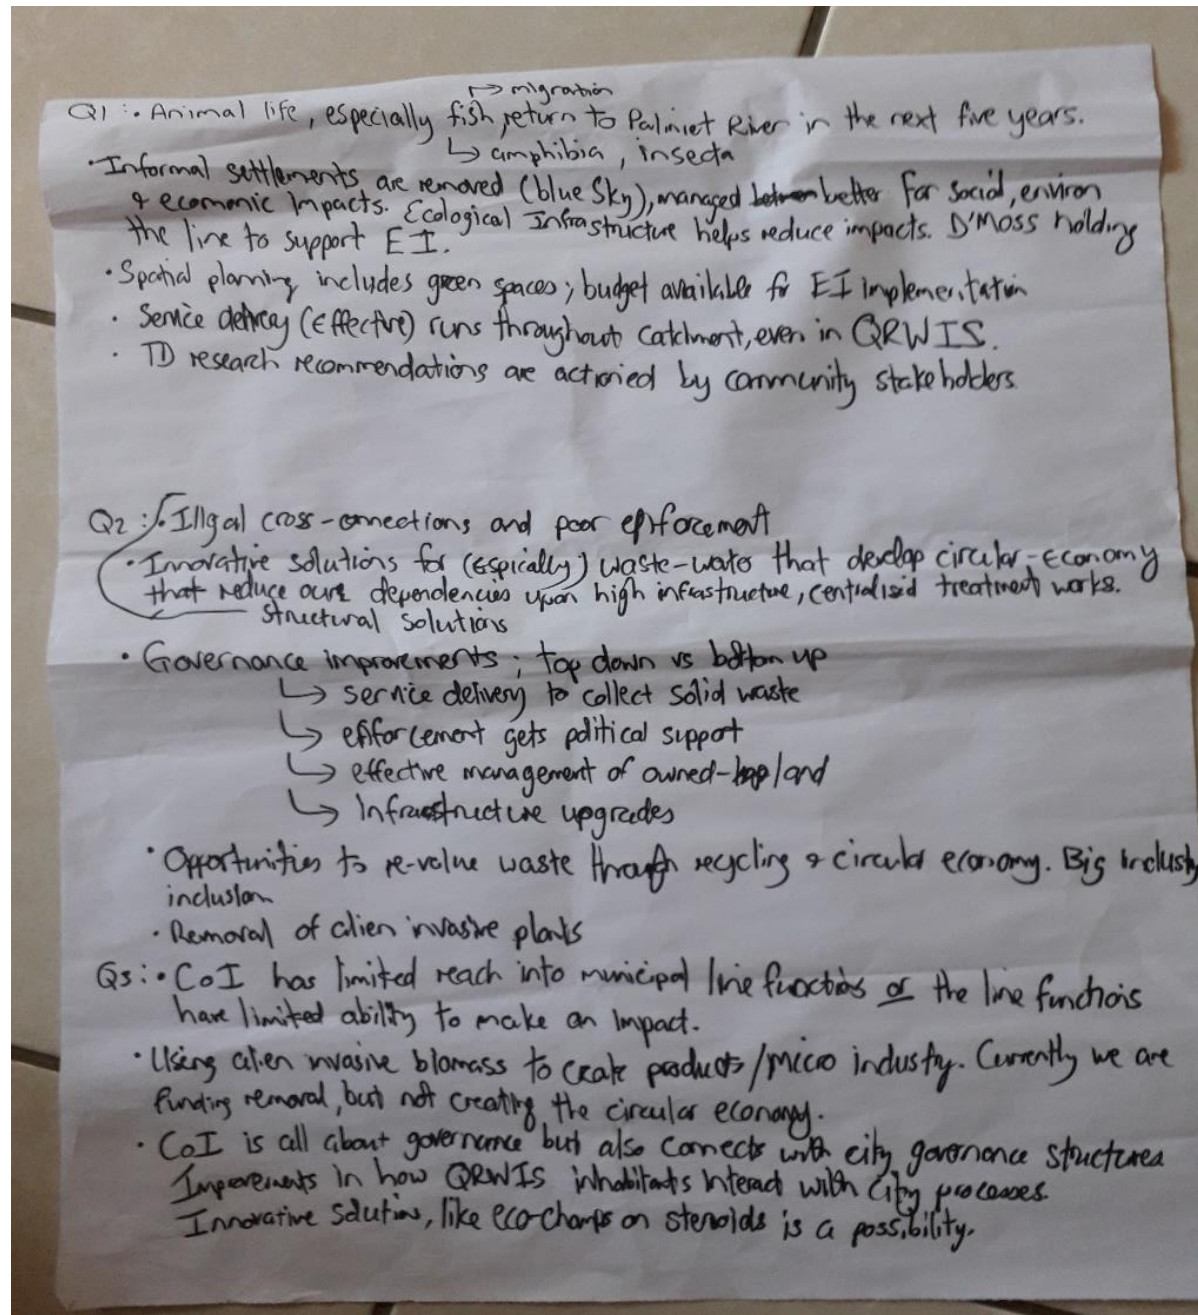 ↳ migration
Q1 :• Animal life, especially fish return to Palmiet River in the next five years.
↳ amphibia, insecta
• Informal settlements are removed (blue Sky), managed better for social, environ
& ecomonic impacts. Ecological Infrastructure helps reduce impacts. D'MOSS holding
the line to support EI.
• Spatial planning includes green spaces; budget available for EI implementation
• Service delivery (effective) runs throughout catchment, even in QRWIS.
• TD research recommendations are actioned by community stakeholders.
Q2 :• Illgal cross-onnections and poor enforcement
• Innovative solutions for (espically) waste-water that develop circular-economy
that reduce our dependencies upon high infrastructure, centralised treatment works.
structural solutions
• Governance improvements; top down vs bottom up
↳ service delivery to collect solid waste
↳ enforcement gets political support
↳ effective management of owned-land
↳ infrastructure upgrades
• Opportunities to re-value waste through recycling & circular economy. Big industry
inclusion
• Removal of alien invasive plants
Q3 :• CoI has limited reach into municipal line functions or the line functions
have limited ability to make an impact.
• Using alien invasive biomass to create products/micro industry. Currently we are
funding removal, but not creating the circular economy.
• CoI is all about governance but also connects with city governance structures
Improvements in how QRWIS inhabitants interact with City processes.
Innovative solutions, like eco-champs on steroids is a possibility.